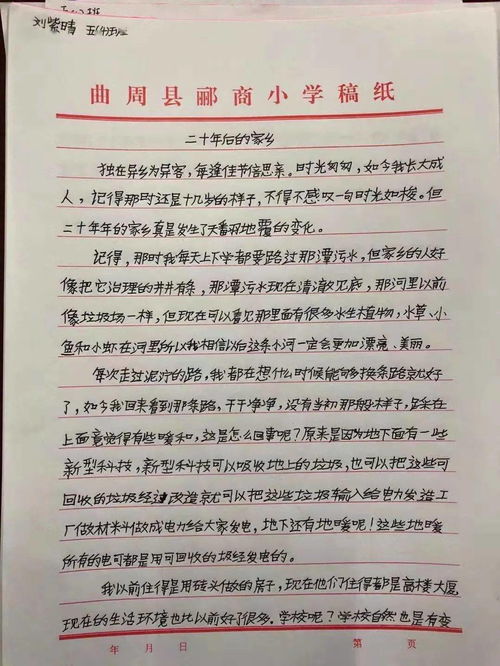 刘紫晴 五(4)班
曲周县郦商小学稿纸
二十年后的家乡
独在异乡为异客，每逢佳节倍思亲。时光匆匆，如今我长大成
人，记得那时还是十几岁的样子，不得不感叹一句时光如梭。但
二十年年的家乡真是发生了天翻地覆的变化。
记得，那时我每天上下学都要路过那潭污水，但家乡的人好
像把它治理的井井有条，那潭污水现在清澈见底，那河里以前
像垃圾场一样，但现在可以看见那里面有很多水生植物，水草、小
鱼和小虾在河里所以我相信以后这条小河一定会更加漂亮、美丽。
每次走过泥泞的路，我都在想什么时候能够换条路就好
了，如今我回来看到那条路，干干净净，没有当初那般样子，踩在
上面竟觉得有些暖和，这是怎么回事呢？原来是因为地下面有一些
新型科技，新型科技可以吸收地上的垃圾，也可以把这些可
回收的垃圾经过改造就可以把这些垃圾输入给电力发造工
厂做材料做成电力给大家发电，地下还有地暖呢！这些地暖
所有的电可都是用可回收的圾经发电的。
我以前住得是用砖头做的房子，现在他们住得都是高楼大厦
现在的生活环境也比以前好了很多。学校呢？学校自然也是有变
年 月 日 第 页